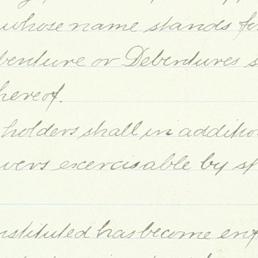 whose name stands fo
benture or Debentures s
hereof.
holders shall in additio
wers exercisable by sp
nstituted has become enf